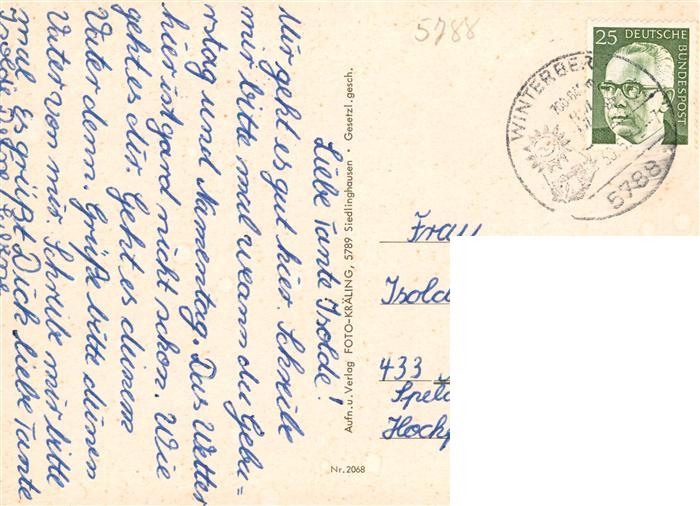 Liebe Tante Isolde!
Mir geht es gut hier. Schreibe
mir bitte mal wann du Gebu=
rstag und Namentag. Das Wetter
hier ist gard nicht schon. Wie
geht es dir. Geht es deinem
Vater denn. Grüße bitte deinen
Vater von mir. Schreibe mir bitte
mal Es grüßt Dich liebe Tante
Isolde
5788
25 DEUTSCHE
BUNDESPOST
WINTERBERG
5788
Frau
Isold
433
Speld
Hochf
Aufn. u. Verlag FOTO-KRÄLING, 5789 Siedlinghausen · Gesetzl. gesch.
Nr. 2068